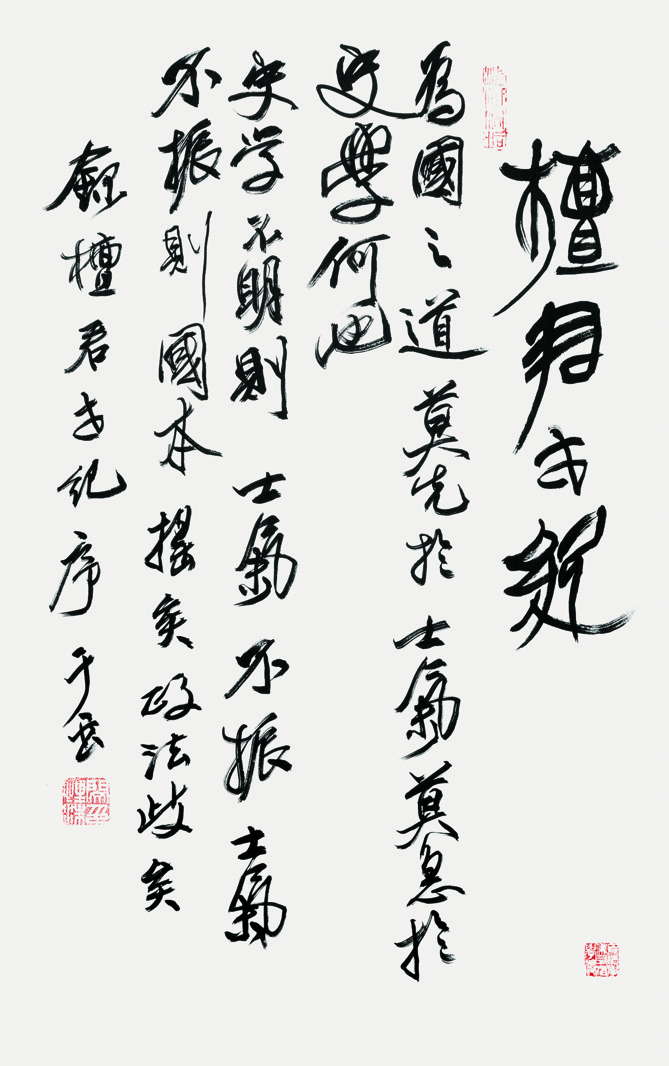 檀君世紀
為國之道莫先於士氣莫急於
史學何也
史学不明則士氣不振士氣
不振則國本搖矣政法歧矣
錄檀君世紀序